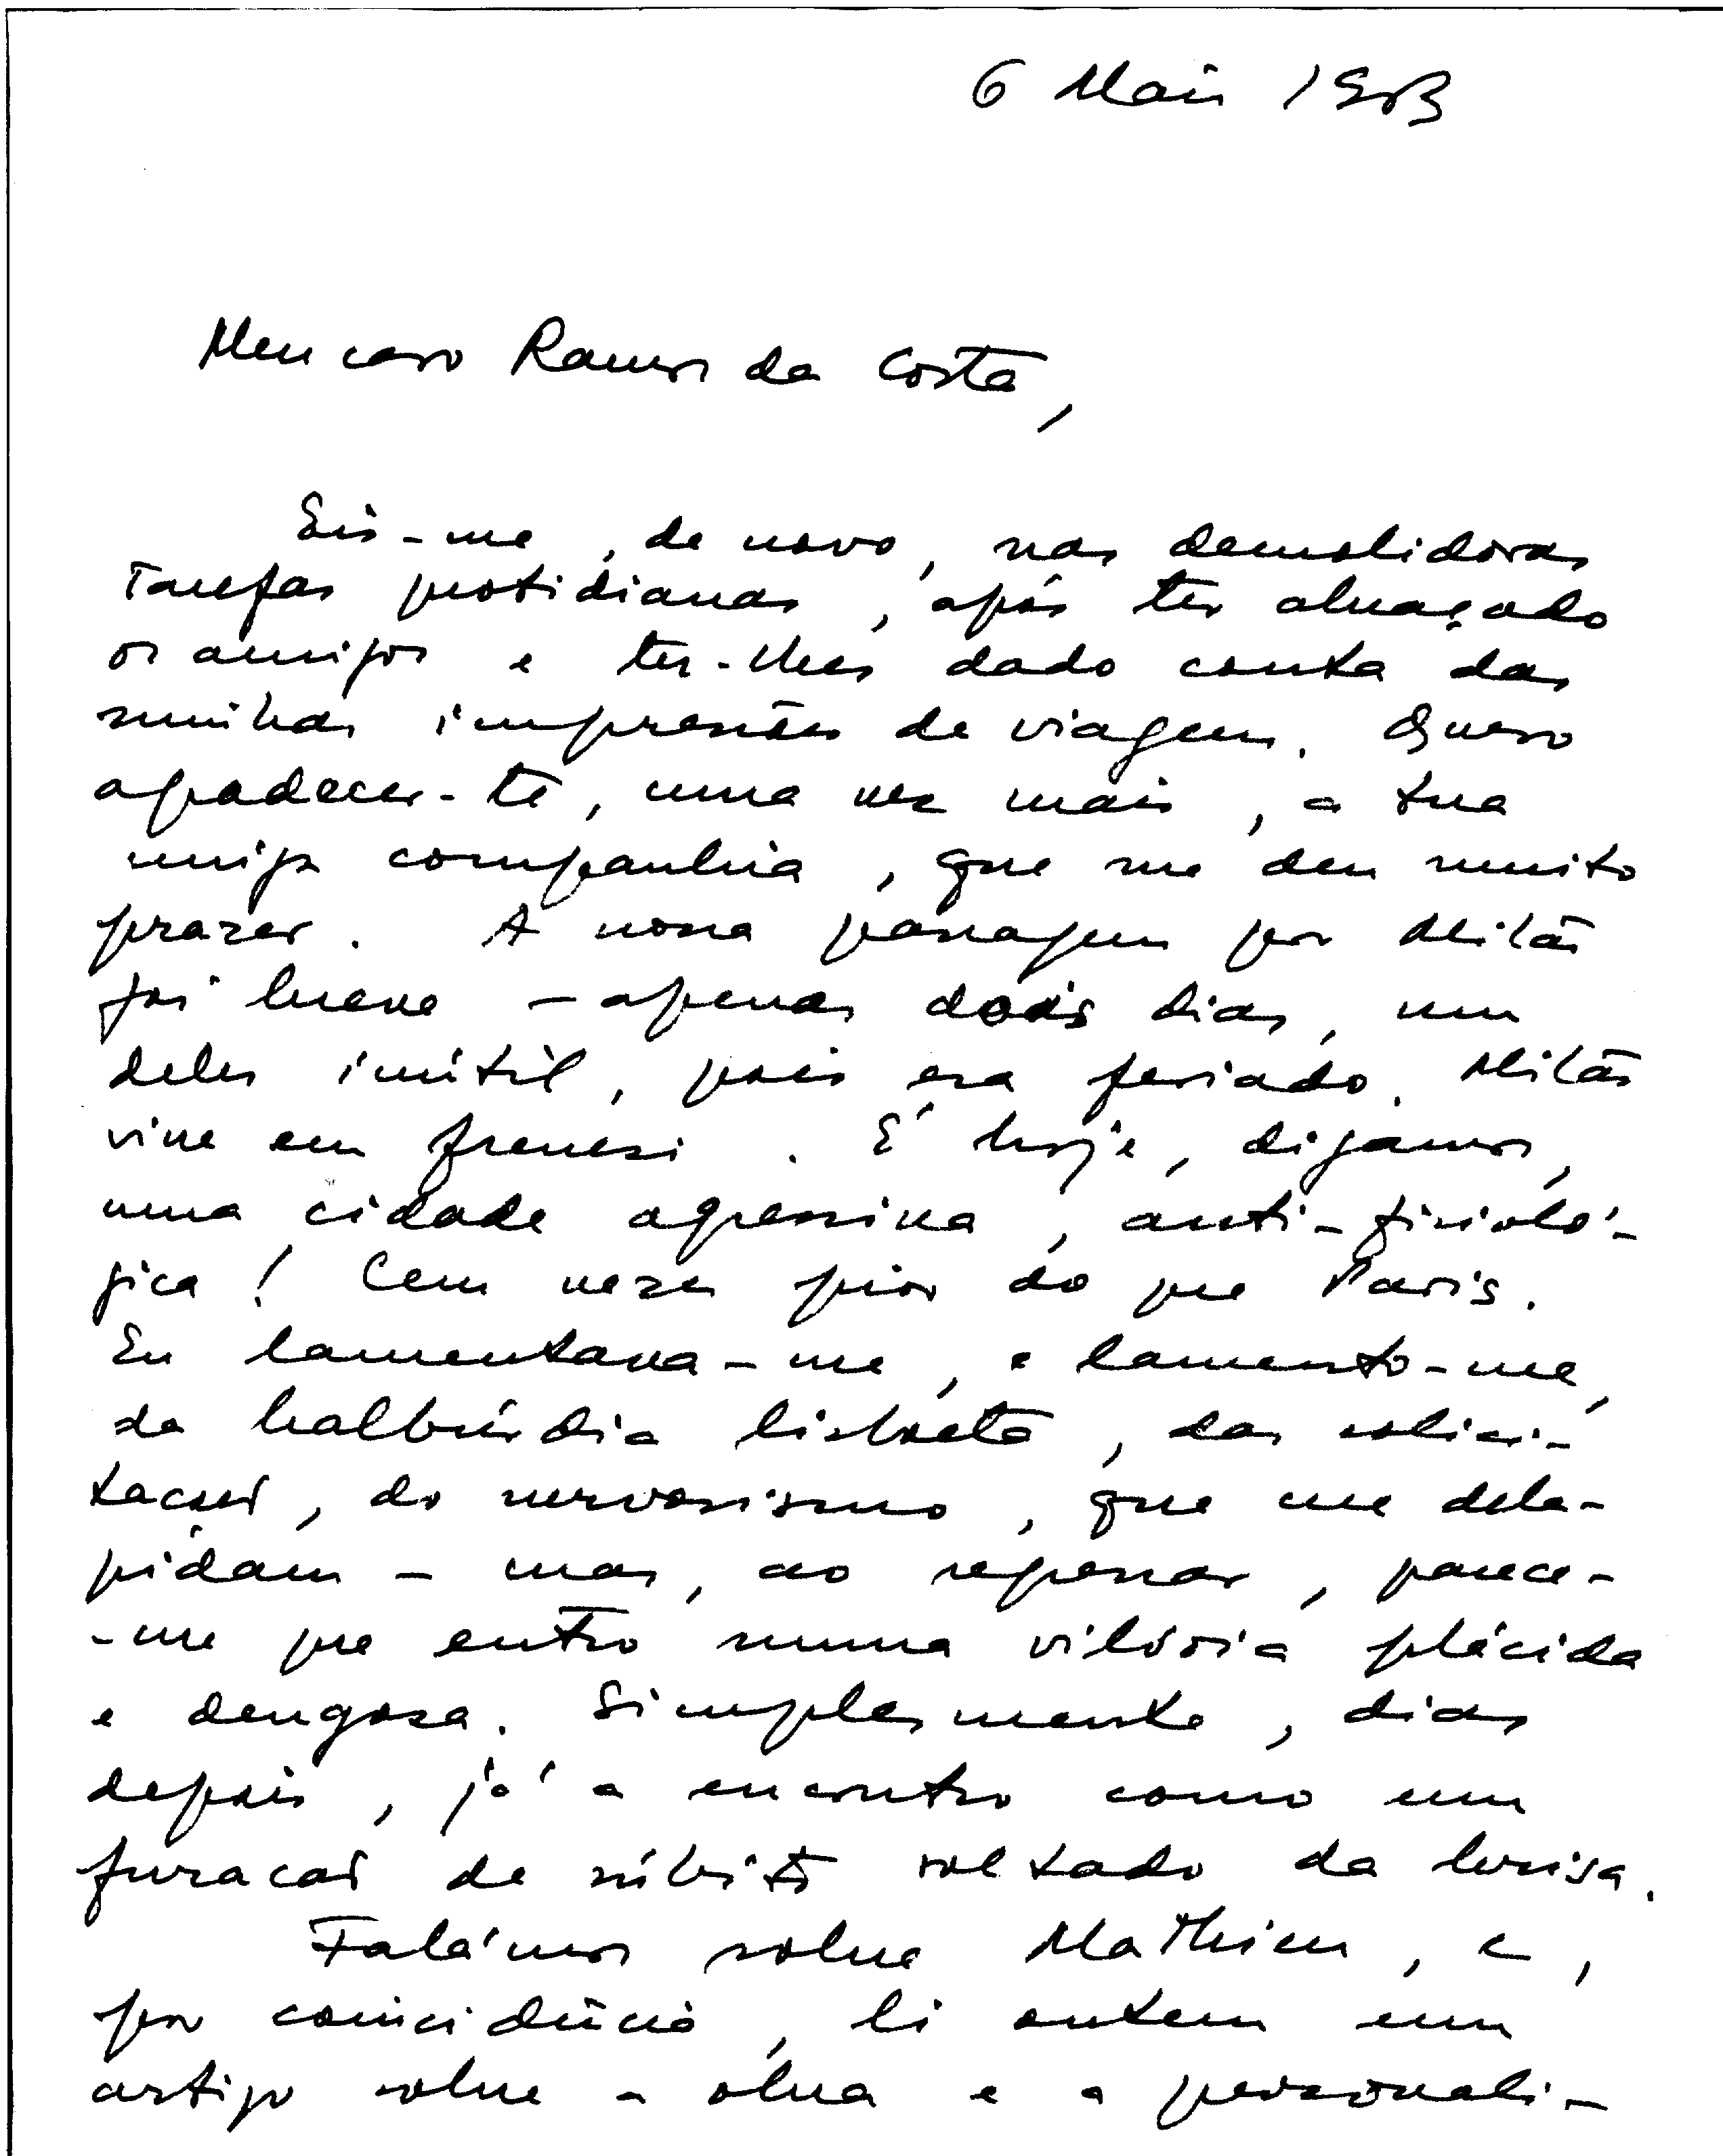 6 Maio 1983
Meu caro Ramos da Costa,
Eis-me, de novo, nas demolidoras
tarefas quotidianas, após ter abraçado
os amigos e ter-lhes dado conta das
minhas impressões de viagem. Quero
agradecer-te, uma vez mais, a tua
amiga companhia, que me deu muito
prazer. A nossa passagem por Milão
foi breve - apenas dois dias, um
deles inútil, pois era feriado. Milão
vive em frenesi. É hoje, digamos,
uma cidade agressiva, anti-fisioló-
gica! Cem vezes pior do que Paris.
Eu lamentava-me, e lamento-me,
da balbúrdia lisboeta, das solici-
tações, do nervosismo, que me dela-
pidam - mas, ao regressar, parece-
-me que entro numa vilória plácida
e dengosa. Simplesmente, dias
depois, já a encontro como um
furacão de súbito soltado da brisa.
Falámos sobre Mathieu, e,
por coincidência, li ontem um
artigo sobre a obra e a personali-